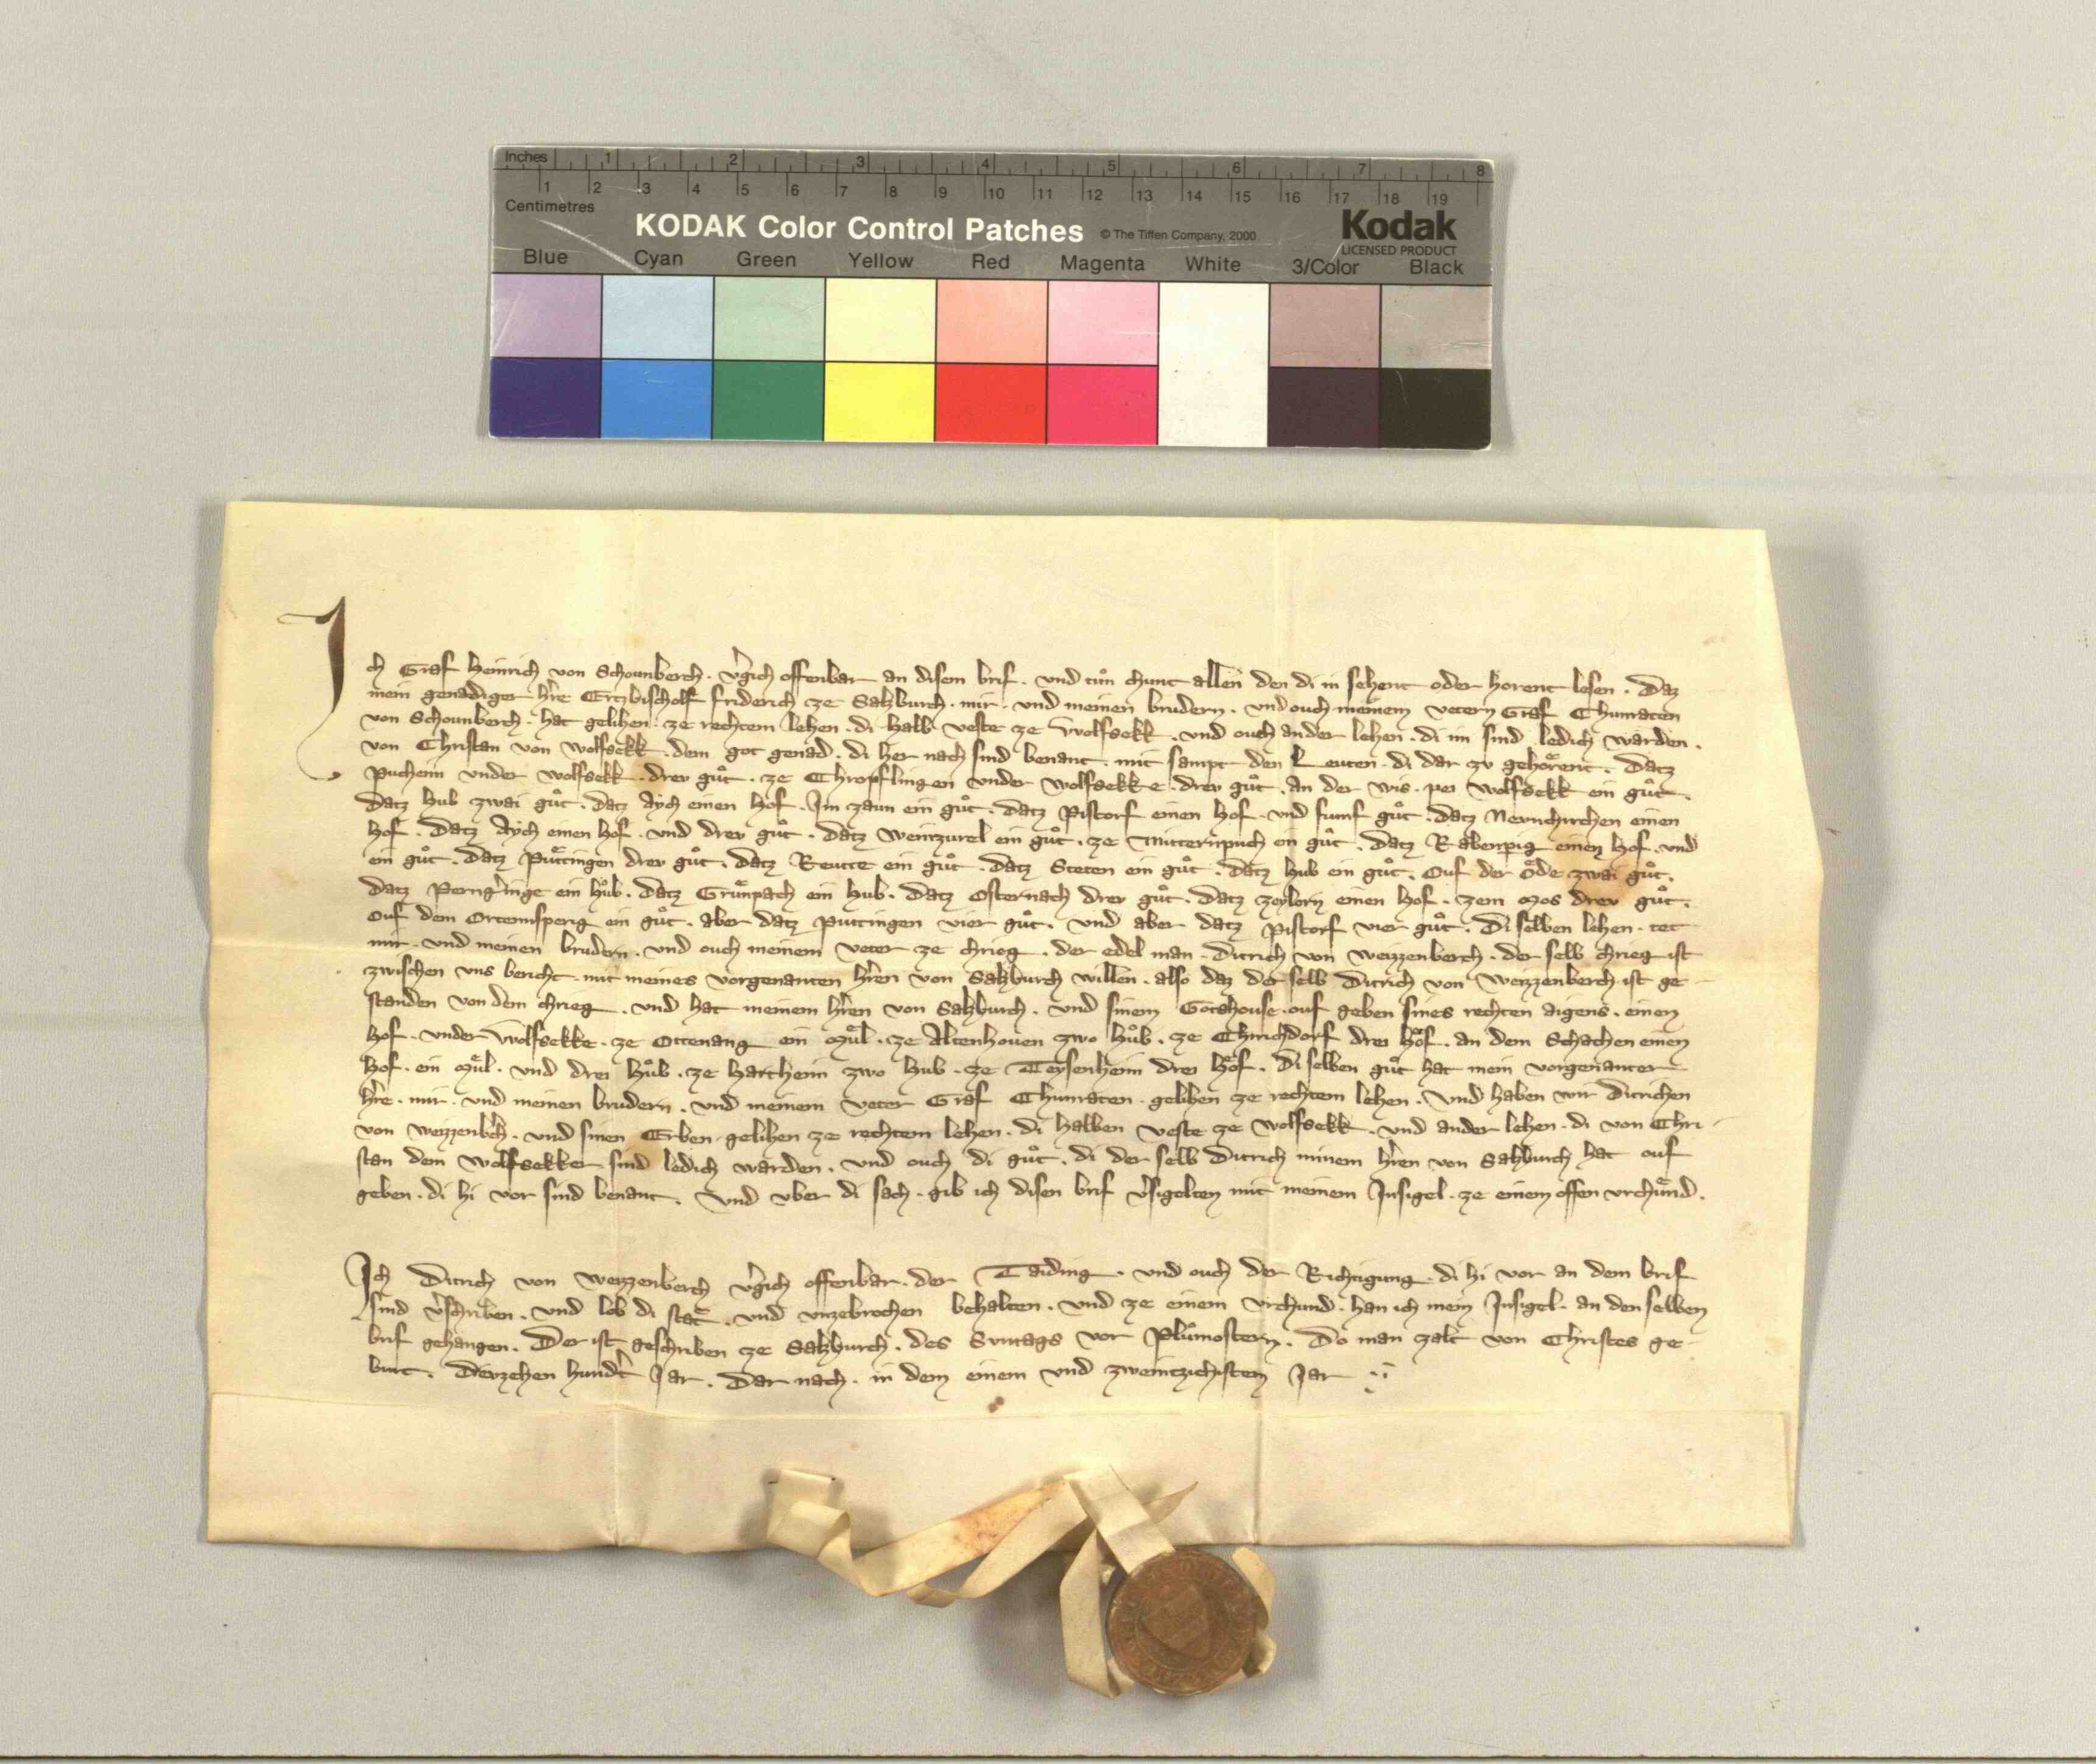 Inches 1 2 3 4 5 6 7 8
1 2 3 4 5 6 7 8 9 10 11 12 13 14 15 16 17 18 19
Centimetres
KODAK Color Control Patches © The Tiffen Company, 2000 Kodak
LICENSED PRODUCT
Blue Cyan Green Yellow Red Magenta White 3/Color Black
Ich Graf Heinrich von Schounberch. v̓gich offenbar an disem brif. und tůn chunt allen den di in sehent oder horent lesen. Daz
mein genadiger h̓re Ertzbischolf Friderich ze Saltzburch. mir. und meinen brudern. und ouch meinem vetern Graf Chunraten
von Schounberch. hat gelihen ze rechtem lehen. di halb veste ze Wolfsekk. und ouch ander lehen. di im sind ledich warden.
von Christan von Wolfsekk. dem got genad. di her nach sind benant. mit sampt den Leuten. di dar zv gehoͤrent. Datz
Pucheim under Wolfsekk. drev guͦt. ze Chropflingen under Wolfsekke. drev guͦt. An der wis. pei Wolfsekk ein guͦt.
Datz Hub zwai guͦt. Datz Aych einen Hof. Im zaun ein guͦt. Datz Pistorf einen Hof. und fumf guͦt. Datz Nevnchirchen einen
Hof. Datz Aych einen Hof. und drev guͦt. Datz Weintzurel ein guͦt. ze Mitternpuch ein guͦt. Datz Rabenpig einen Hof. und
ein guͦt. Datz Puͤttingen drev guͦt. Datz Reutte ein guͦt. Datz Steten ein guͦt. Datz Hub ein guͦt. Ouf der oͤde zwai guͦt.
Datz Perngringe ein Huͦb. Datz Gruͤnpach ein Hub. Datz Osternach drev guͦt. Datz Zeylern einen Hof. Zem Mos drev guͦt.
Ouf dem Ortennsperig ein guͦt. aber datz Puttingen vier guͦt. und aber datz Pistorf vier guͦt. Di selben lehen. tet
mir. und meinen brudern. und ouch meinem veter ze chrieg. der edel man. Ditrich von Weizzenberch. der selb chrieg ist
zwischen uns bericht. mit meines vorgenanten h̓ren von Saltzburch willen. also daz der selb Ditrich von Weizzenberch. ist ge-
standen von dem chrieg. und hat meinem h̓ren von Saltzburch. und sinem Gotshouse. ouf geben sines rechten aigens. einen
Hof. under Wolfsekke. ze Ottenang ein Muͤl. ze Altenhoven zwo Huͦb. ze Chirichdorf drei Hoͤf. an dem Schachen einen
Hof. ein Muͤl. und drei Huͦb. ze Hartheim zwo Hub. ze Teysenheim drei Hoͤf. Di selben guͦt hat mein vorgenanter
h̓re. mir. und meinen brudern. und meinem veter Graf Chunraten. gelihen ze rechtem lehen. Und haben wir Ditrichen
von Weizzenb̓ch. und sinen Erben gelihen ze rechtem lehen. di halben veste ze Wolfsekk. und ander lehen. di von Chri-
stan dem Wolfsekker sind ledich warden. und ouch di guͦt. di der selb Ditrich minem h̓ren von Saltzburch hat ouf
geben. di hi vor sind benant. Und vber di sach. gib ich disen brif v̓sigelten mit meinem Insigel. ze einem offen vrchuͤnd.
Ich Ditrich von Weizzenberch v̓gich offenbar. der Taiding. und ouch der Richtigung. di hi vor an dem brif
sind v̓schriben. und lob di staͤt. und vnzebrochen behalten. und ze einem vrchund. han ich mein Insigel. an den selben
brif gehangen. Der ist geschriben ze Saltzburch. des Svntags vor Pluͦmostern. Do man zalt von Christes ge-
burt. Drevzehen hund̓t Jar. Dar nach. in dem einem und zweintzichisten Jar